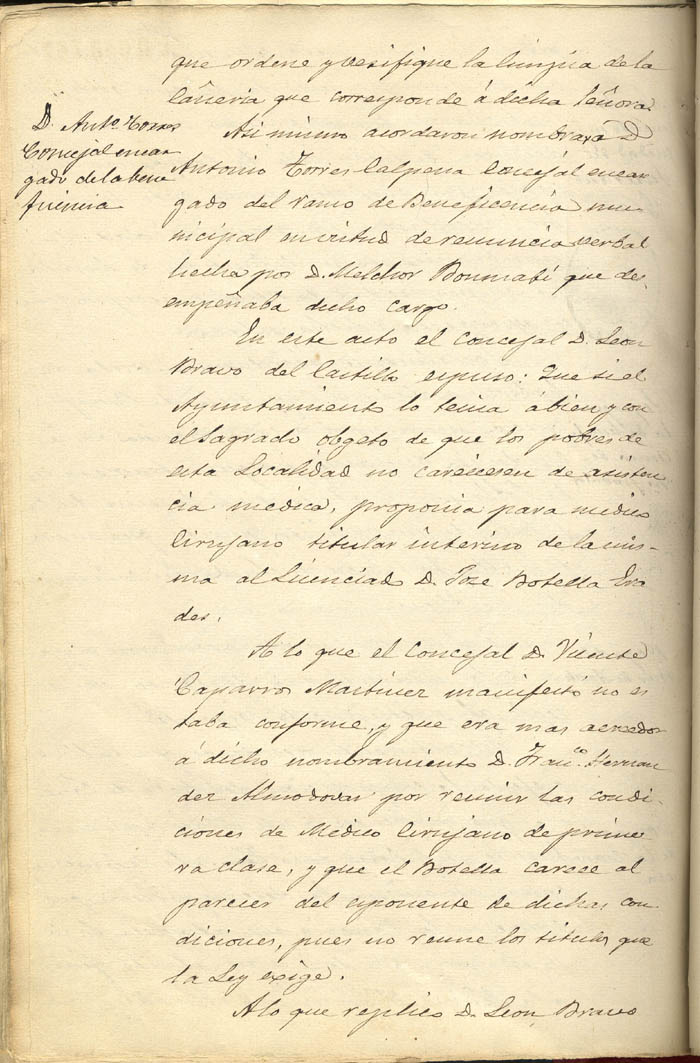 que ordene y verifique la limpia de la
cañeria que corresponde á dicha Señora.
D. Antº Torres
Concejal encar
gado de la bene
ficiencia
Asi mismo acordaron nombrar á D
Antonio Torres Calpena Concejal encar
gado del ramo de Beneficencia mu
nicipal en virtud de renuncia verbal
hecha por D. Melchor Bonmati que des
empeñaba dicho cargo.
En este acto el Concejal D. Leon
Bravo del Castillo espuso: Que si el
Ayuntamiento lo tenia á bien y con
el sagrado obgeto de que los pobres de
esta Localidad no careciesen de asisten
cia medica, proponia para medico
Cirujano titular interino de la mis-
ma al Licenciado D. Jose Botella Era
des.
A lo que el Concejal D. Vicente
Caparros Martinez manifestó no es
taba conforme, y que era mas acreedor
á dicho nombramiento D. Franco. Hernan
dez Almodovar por reunir las condi-
ciones de Medico Cirujano de prime
ra clase, y que el Botella carece al
parecer del esponente de dichas con
diciones, pues no reune los titulos que
la Ley exige.
A lo que replico D. Leon Bravo